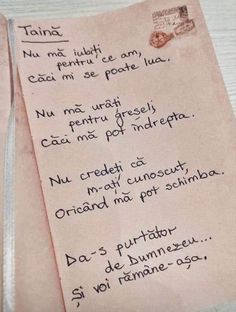 Taină
Nu mă iubiți
pentru ce am,
Căci mi se poate lua.
Nu mă urâți
pentru greșeli,
Căci mă pot îndrepta.
Nu credeți că
m-ați cunoscut,
Oricând mă pot schimba.
Da-s purtător
de Dumnezeu...
Și voi rămâne-așa.